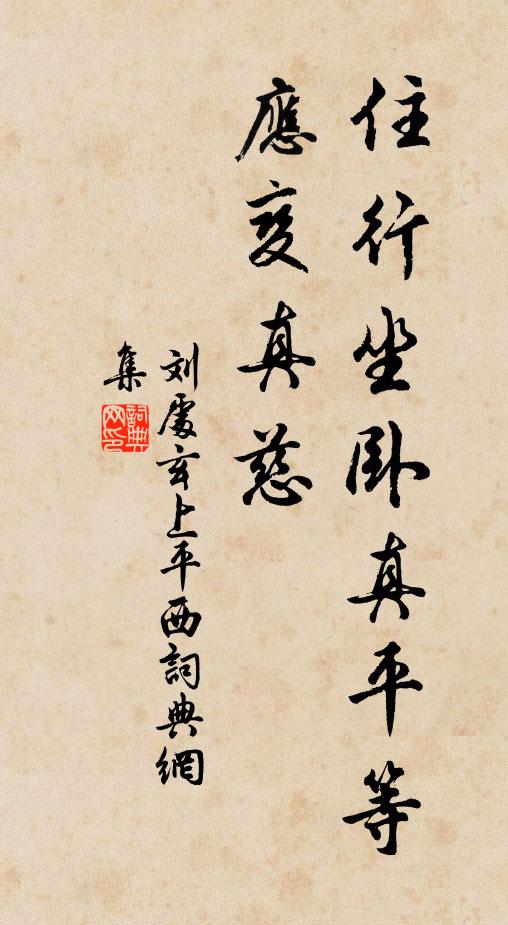 住行坐卧真平等
應变真慈
刘處玄上平西詞典網
集
詞典网印